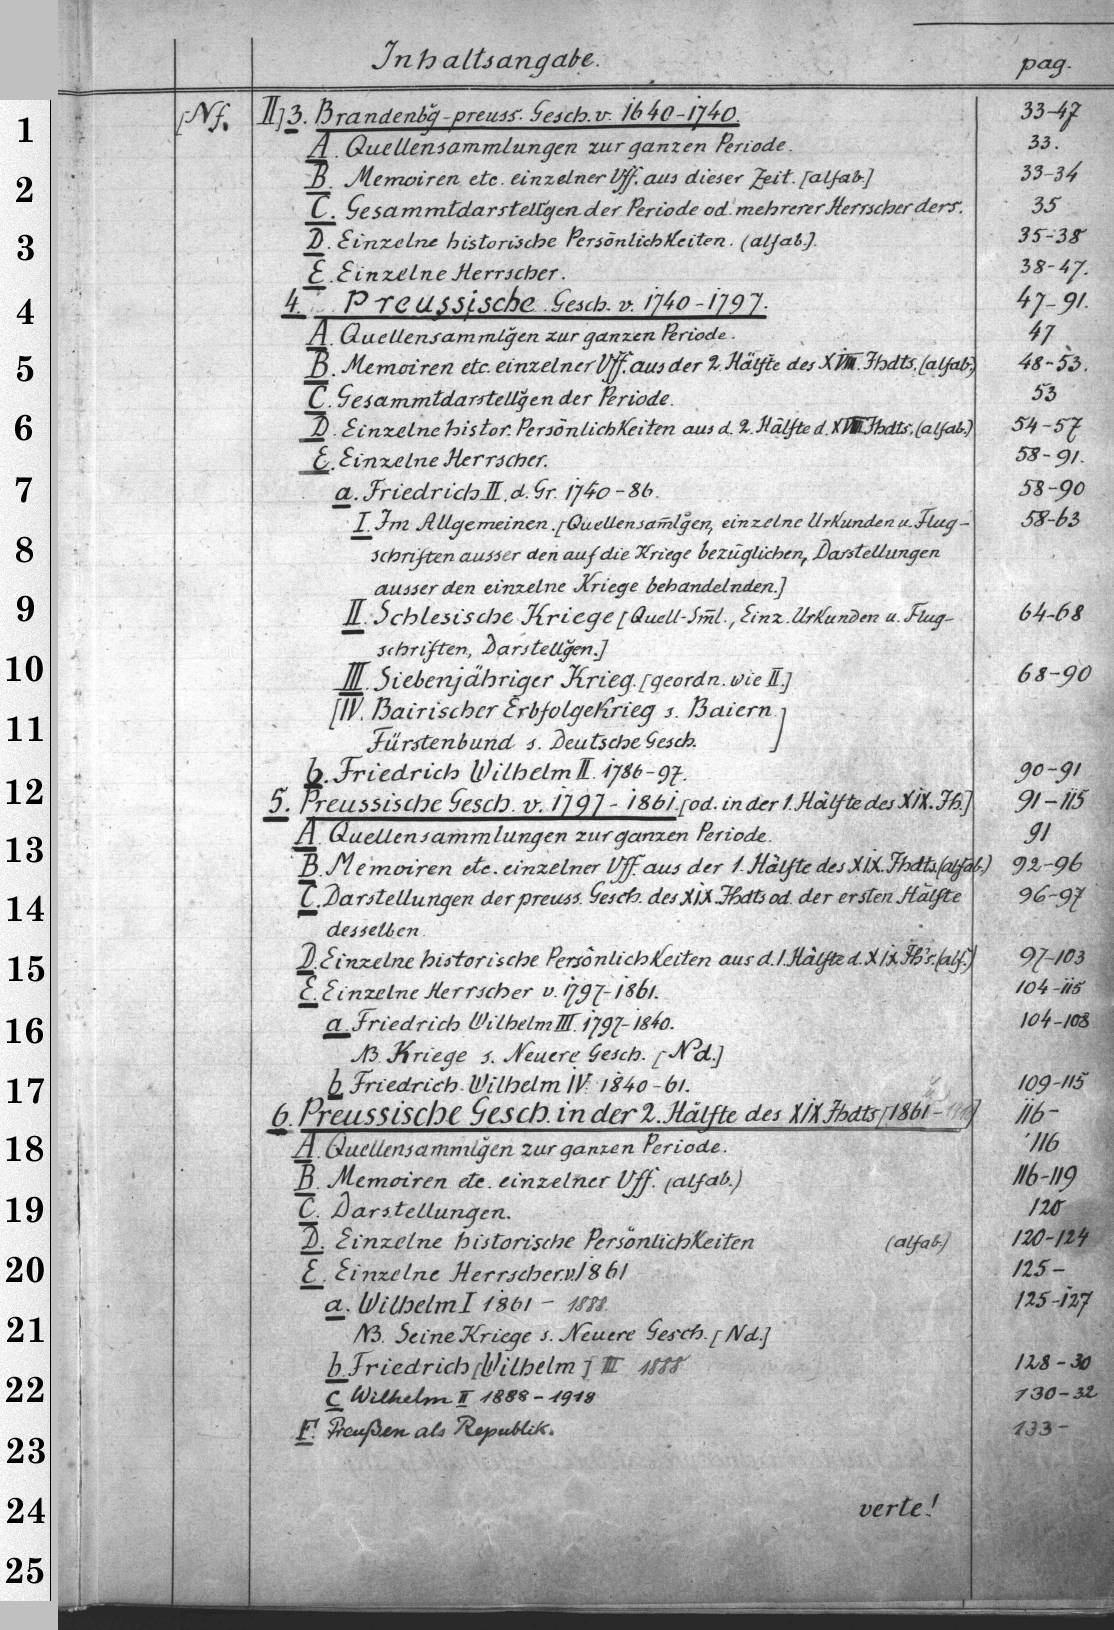 Inhaltsangabe. pag.
[Nf. II] 3. Brandenbg̃-preuss. Gesch. v. 1640-1740. 33-47
A. Quellensammlungen zur ganzen Periode. 33.
B. Memoiren etc. einzelner Vff. aus dieser Zeit. [alfab.] 33-34
C. Gesammtdarstellg̃en der Periode od. mehrerer Herrscher ders. 35
D. Einzelne historische Persönlichkeiten. (alfab.]. 35-38
E. Einzelne Herrscher. 38-47.
4. Preussische Gesch. v. 1740-1797. 47-91.
A. Quellensammlg̃en zur ganzen Periode. 47
B. Memoiren etc. einzelner Vff. aus der 2. Hälfte des XVIII. Jhdts. (alfab.) 48-53.
C. Gesammtdarstellg̃en der Periode. 53
D. Einzelne histor. Persönlichkeiten aus d. 2. Hälfte d. XVIII Jhdts. (alfab.) 54-57
E. Einzelne Herrscher. 58-91.
a. Friedrich II. d. Gr. 1740-86. 58-90
I. Im Allgemeinen. [Quellensam̅lg̃en, einzelne Urkunden u. Flug- 58-63
schriften ausser den auf die Kriege bezüglichen, Darstellungen
ausser den einzelne Kriege behandelnden.]
II. Schlesische Kriege [Quell-Sm̅l., Einz. Urkunden u. Flug- 64-68
schriften, Darstellg̃en.]
III. Siebenjähriger Krieg. [geordn. wie II.] 68-90
[IV. Bairischer Erbfolgekrieg s. Baiern
Fürstenbund s. Deutsche Gesch. ]
b. Friedrich Wilhelm II. 1786-97. 90-91
5. Preussische Gesch. v. 1797-1861. [od. in der 1. Hälfte des XIX. Jh.] 91-115
A. Quellensammlungen zur ganzen Periode. 91
B. Memoiren etc. einzelner Vff. aus der 1. Hälfte des XIX. Jhdts. (alfab.) 92-96
C. Darstellungen der preuss. Gesch. des XIX Jhdts od. der ersten Hälfte 96-97
desselben.
D. Einzelne historische Persönlichkeiten aus d. 1. Hälfte d. XIX Jh's. (alf.) 97-103
E. Einzelne Herrscher v. 1797-1861. 104-115
a. Friedrich Wilhelm III. 1797-1840. 104-108
NB. Kriege s. Neuere Gesch. [Nd.]
b. Friedrich Wilhelm IV. 1840-61. 109-115
6. Preussische Gesch. in der 2. Hälfte des XIX Jhdts [1861- ] 116-
A. Quellensammlg̃en zur ganzen Periode. 116
B. Memoiren etc. einzelner Vff. (alfab.) 116-119
C. Darstellungen. 120
D. Einzelne historische Persönlichkeiten (alfab.) 120-124
E. Einzelne Herrscher v. 1861 125-
a. Wilhelm I 1861 - 1888. 125-127
NB. Seine Kriege s. Neuere Gesch. [Nd.]
b. Friedrich [Wilhelm] III 1888 128-30
c Wilhelm II 1888-1918 130-32
F. Preußen als Republik. 133-
verte!
1
2
3
4
5
6
7
8
9
10
11
12
13
14
15
16
17
18
19
20
21
22
23
24
25